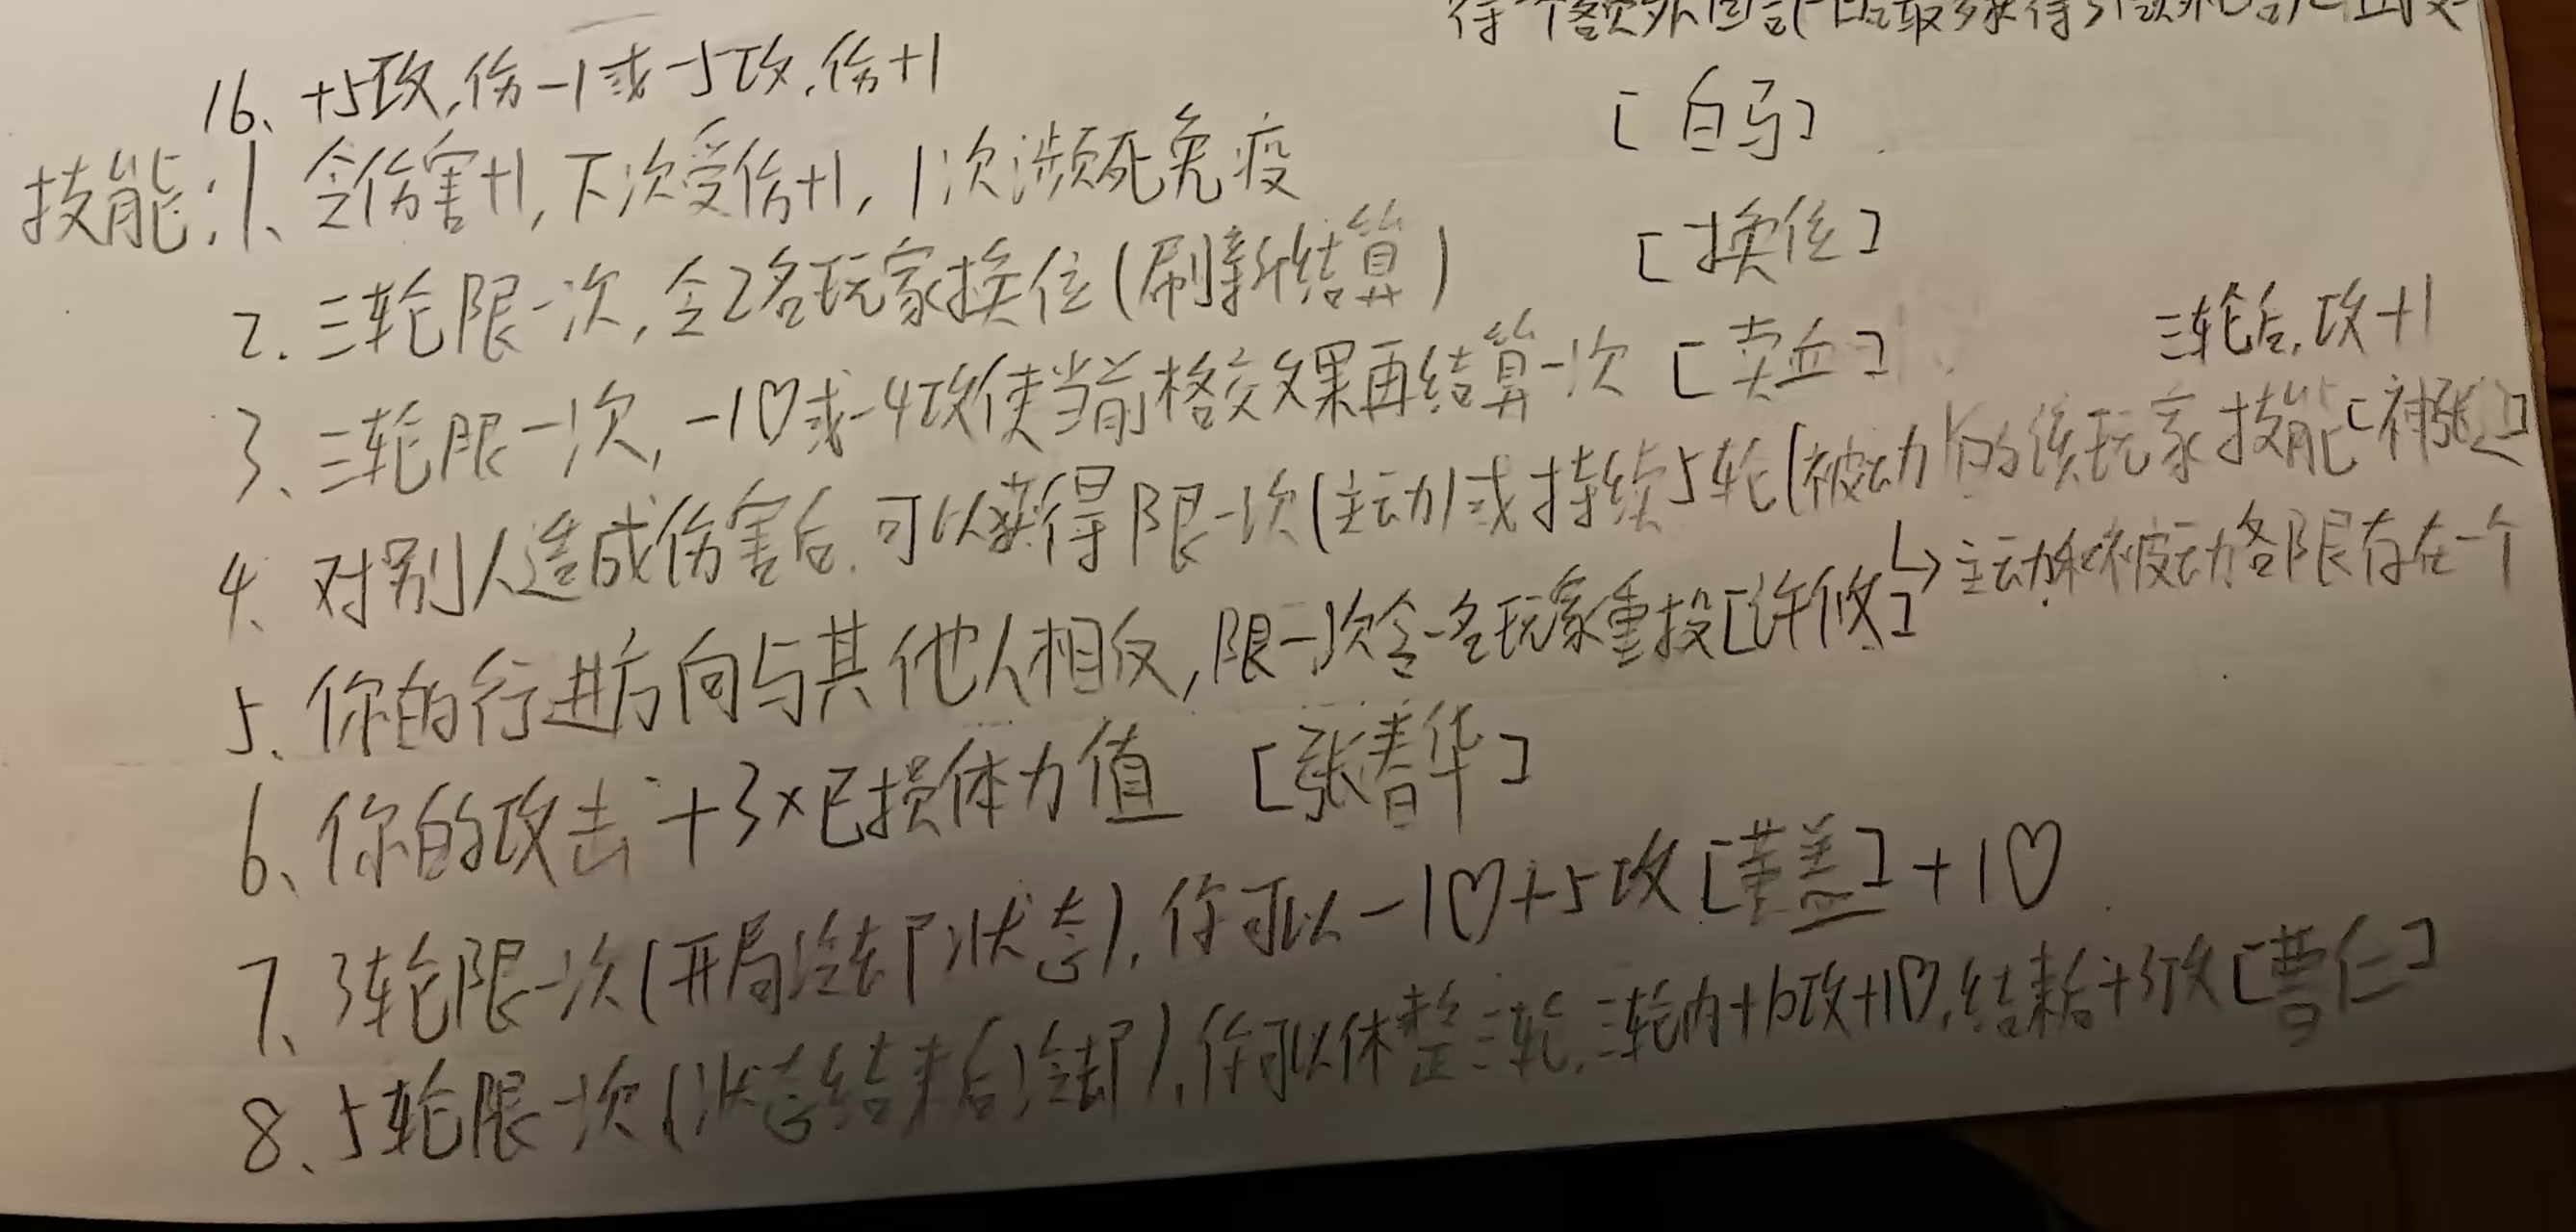 16、+5攻,伤-1或-5攻,伤+1
技能:1、令伤害+1,下次受伤+1,1次濒死免疫 [白马]
2.三轮限一次,令2名玩家换位(刷新结算) [换位]
3、三轮限一次,-1♡或-4攻使当前格效果再结算一次 [卖血]
三轮后,攻+1
4、对别人造成伤害后,可以获得限一次(主动)或持续5轮(被动)的该玩家技能
↳主动和被动各限存在一个
5、你的行进方向与其他人相反,限一次令一名玩家重投[许攸]
6、你的攻击+3×已损体力值 [张春华]
7、3轮限一次(开局冷却状态),你可以-1♡+5攻[黄盖]+1♡
8、5轮限一次(状态结束后冷却),你可以休整三轮,三轮内+6攻+1♡,结束后+3攻[曹仁]